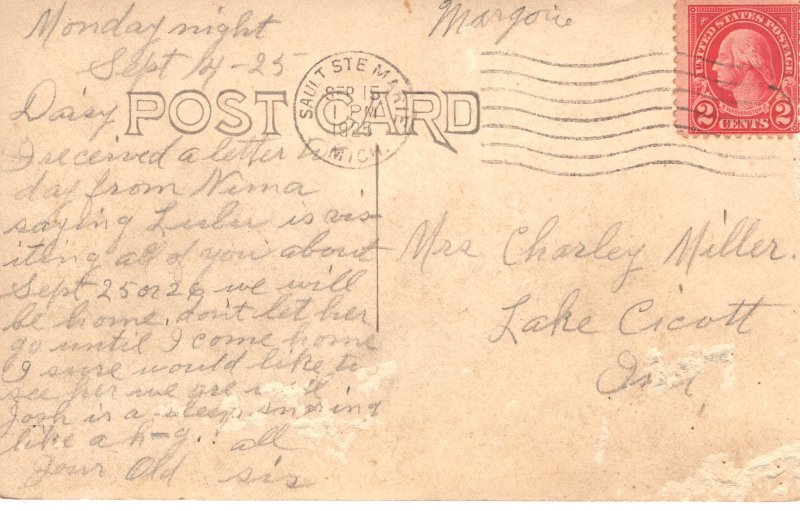 Monday night
Sept 14-25
Margorie
UNITED STATES POSTAGE
WASHINGTON
2 CENTS 2
SAULT STE MARIE
SEP 15
1 PM
1925
MICH.
POST CARD
Daisy
I received a letter to
day from Nima
saying Lulu is vis-
iting all of you about
Sept 25 or 26 we will
be home. don't let her
go until I come home
I sure would like to
see her we are well
Josh is a sleep snoring
like a h-g. all
Your Old sis
Mrs Charley Miller.
Lake Cicott
Ind,